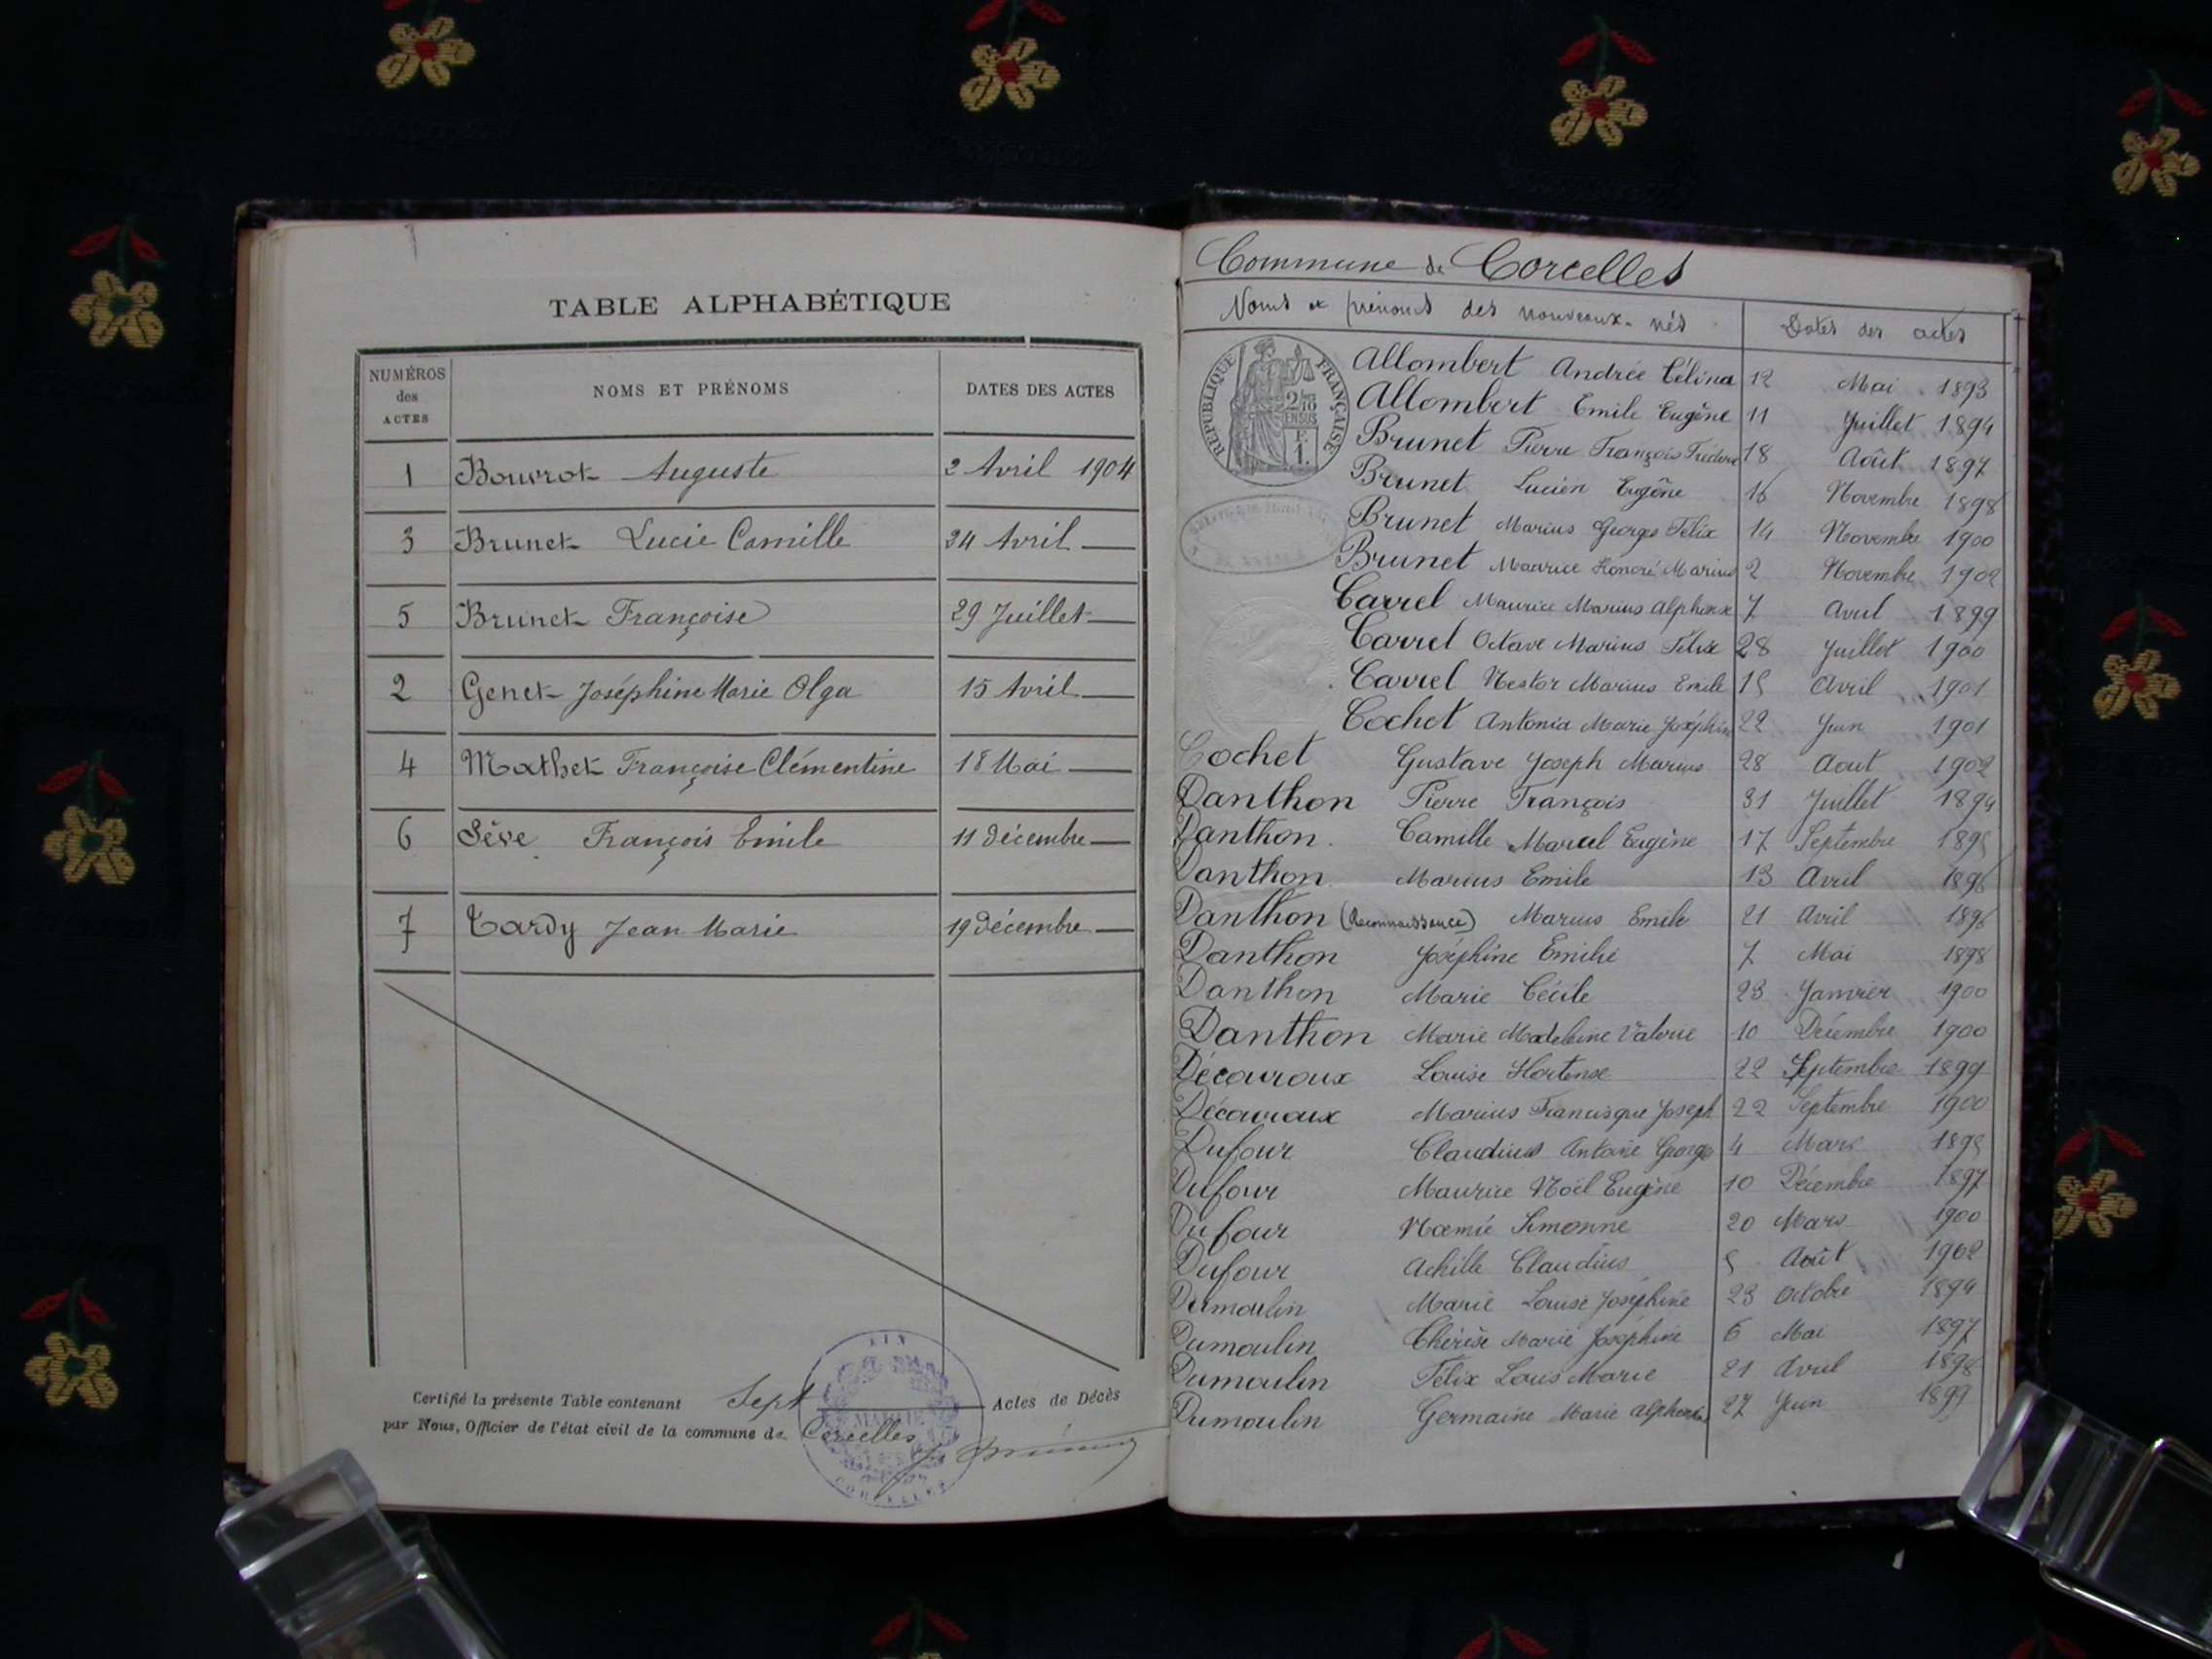 TABLE ALPHABÉTIQUE
NUMÉROS des ACTES NOMS ET PRÉNOMS DATES DES ACTES
1 Bouvrot Auguste 2 Avril 1904
3 Brunet Lucie Camille 24 Avril —
5 Brunet Françoise 29 Juillet —
2 Genet Joséphine Marie Olga 15 Avril —
4 Mathet Françoise Clémentine 18 Mai —
6 Sève François Emile 11 Décembre —
7 Tardy Jean Marie 19 Décembre —
Certifié la présente Table contenant Sept Actes de Décès
par Nous, Officier de l'état civil de la commune de Corcelles
AIN
MAIRIE
CORCELLES
Commune de Corcelles
Noms et prénoms des nouveaux-nés Dates des actes
RÉPUBLIQUE FRANÇAISE
2/10 EN SUS
Allombert Andrée Célina 12 Mai 1893
Allombert Emile Eugène 11 Juillet 1894
Brunet Pierre François Fréderic 18 Août 1897
Brunet Lucien Eugène 16 Novembre 1898
Brunet Marius Georges Félix 14 Novembre 1900
Brunet Maurice Honoré Marius 2 Novembre 1902
Carrel Maurice Marius Alphonse 7 Avril 1899
Carrel Octave Marius Félix 28 Juillet 1900
Carrel Nestor Marius Emile 15 Avril 1901
Cochet Antonia Marie Joséphine 22 Juin 1901
Cochet Gustave Joseph Marius 28 Aout 1902
Danthon Pierre François 31 Juillet 1894
Danthon Camille Marcel Eugène 17 Septembre 1895
Danthon Marius Emile 13 Avril 1896
Danthon (Reconnaissance) Marius Emile 21 Avril 1896
Danthon Joséphine Emilie 7 Mai 1898
Danthon Marie Cécile 23 Janvier 1900
Danthon Marie Madeleine Valerie 10 Décembre 1900
Décauroux Louise Hortense 22 Septembre 1899
Décauroux Marius Francisque Joseph 22 Septembre 1900
Dufour Claudius Antoine George 4 Mars 1895
Dufour Maurice Noël Eugène 10 Décembre 1897
Dufour Noemie Simonne 20 Mars 1900
Dufour Achille Claudius 5 Août 1902
Dumoulin Marie Louise Joséphine 23 Octobre 1894
Dumoulin Thérèse Marie Joséphine 6 Mai 1897
Dumoulin Félix Louis Marie 21 Avril 1898
Dumoulin Germaine Marie Alphonsine 27 Juin 1899